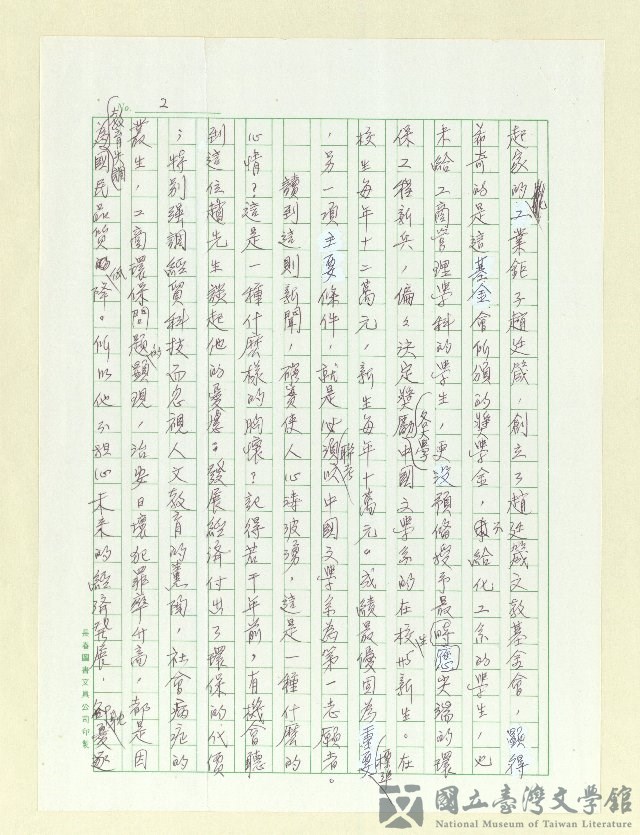 No. 2
起家的工業鉅子趙廷箴,創立了趙廷箴文教基金會,顯得
希奇的是這基金會所頒的獎學金,不給化工系的學生,也
未給工商管理學科的學生,更沒預備授予最時應尖端的環
保工程新兵,偏偏決定獎勵各大學中國文學系的在校生與新生。在
校生每年十二萬元,新生每年十萬元。成績最優固為重要標準
,另一項主要條件,就是必須以聯考中國文學系為第一志願者。
讀到這則新聞,確實使人心濤波湧,這是一種什麼的
心情?這是一種什麼樣的胸懷?記得若干年前,有機會聽
到這位趙先生談起他的憂慮:發展經濟付出了環保的代價
;特別強調經貿科技而忽視人文教育的意向,社會病症的
叢生,工商環保問題的顯現,治安日壞犯罪率升高,都是因
為教育失調國民品質低降。所以他不担心未來的經濟發展,卻憂
長春圖書文具公司印製
國立臺灣文學館
National Museum of Taiwan Literature